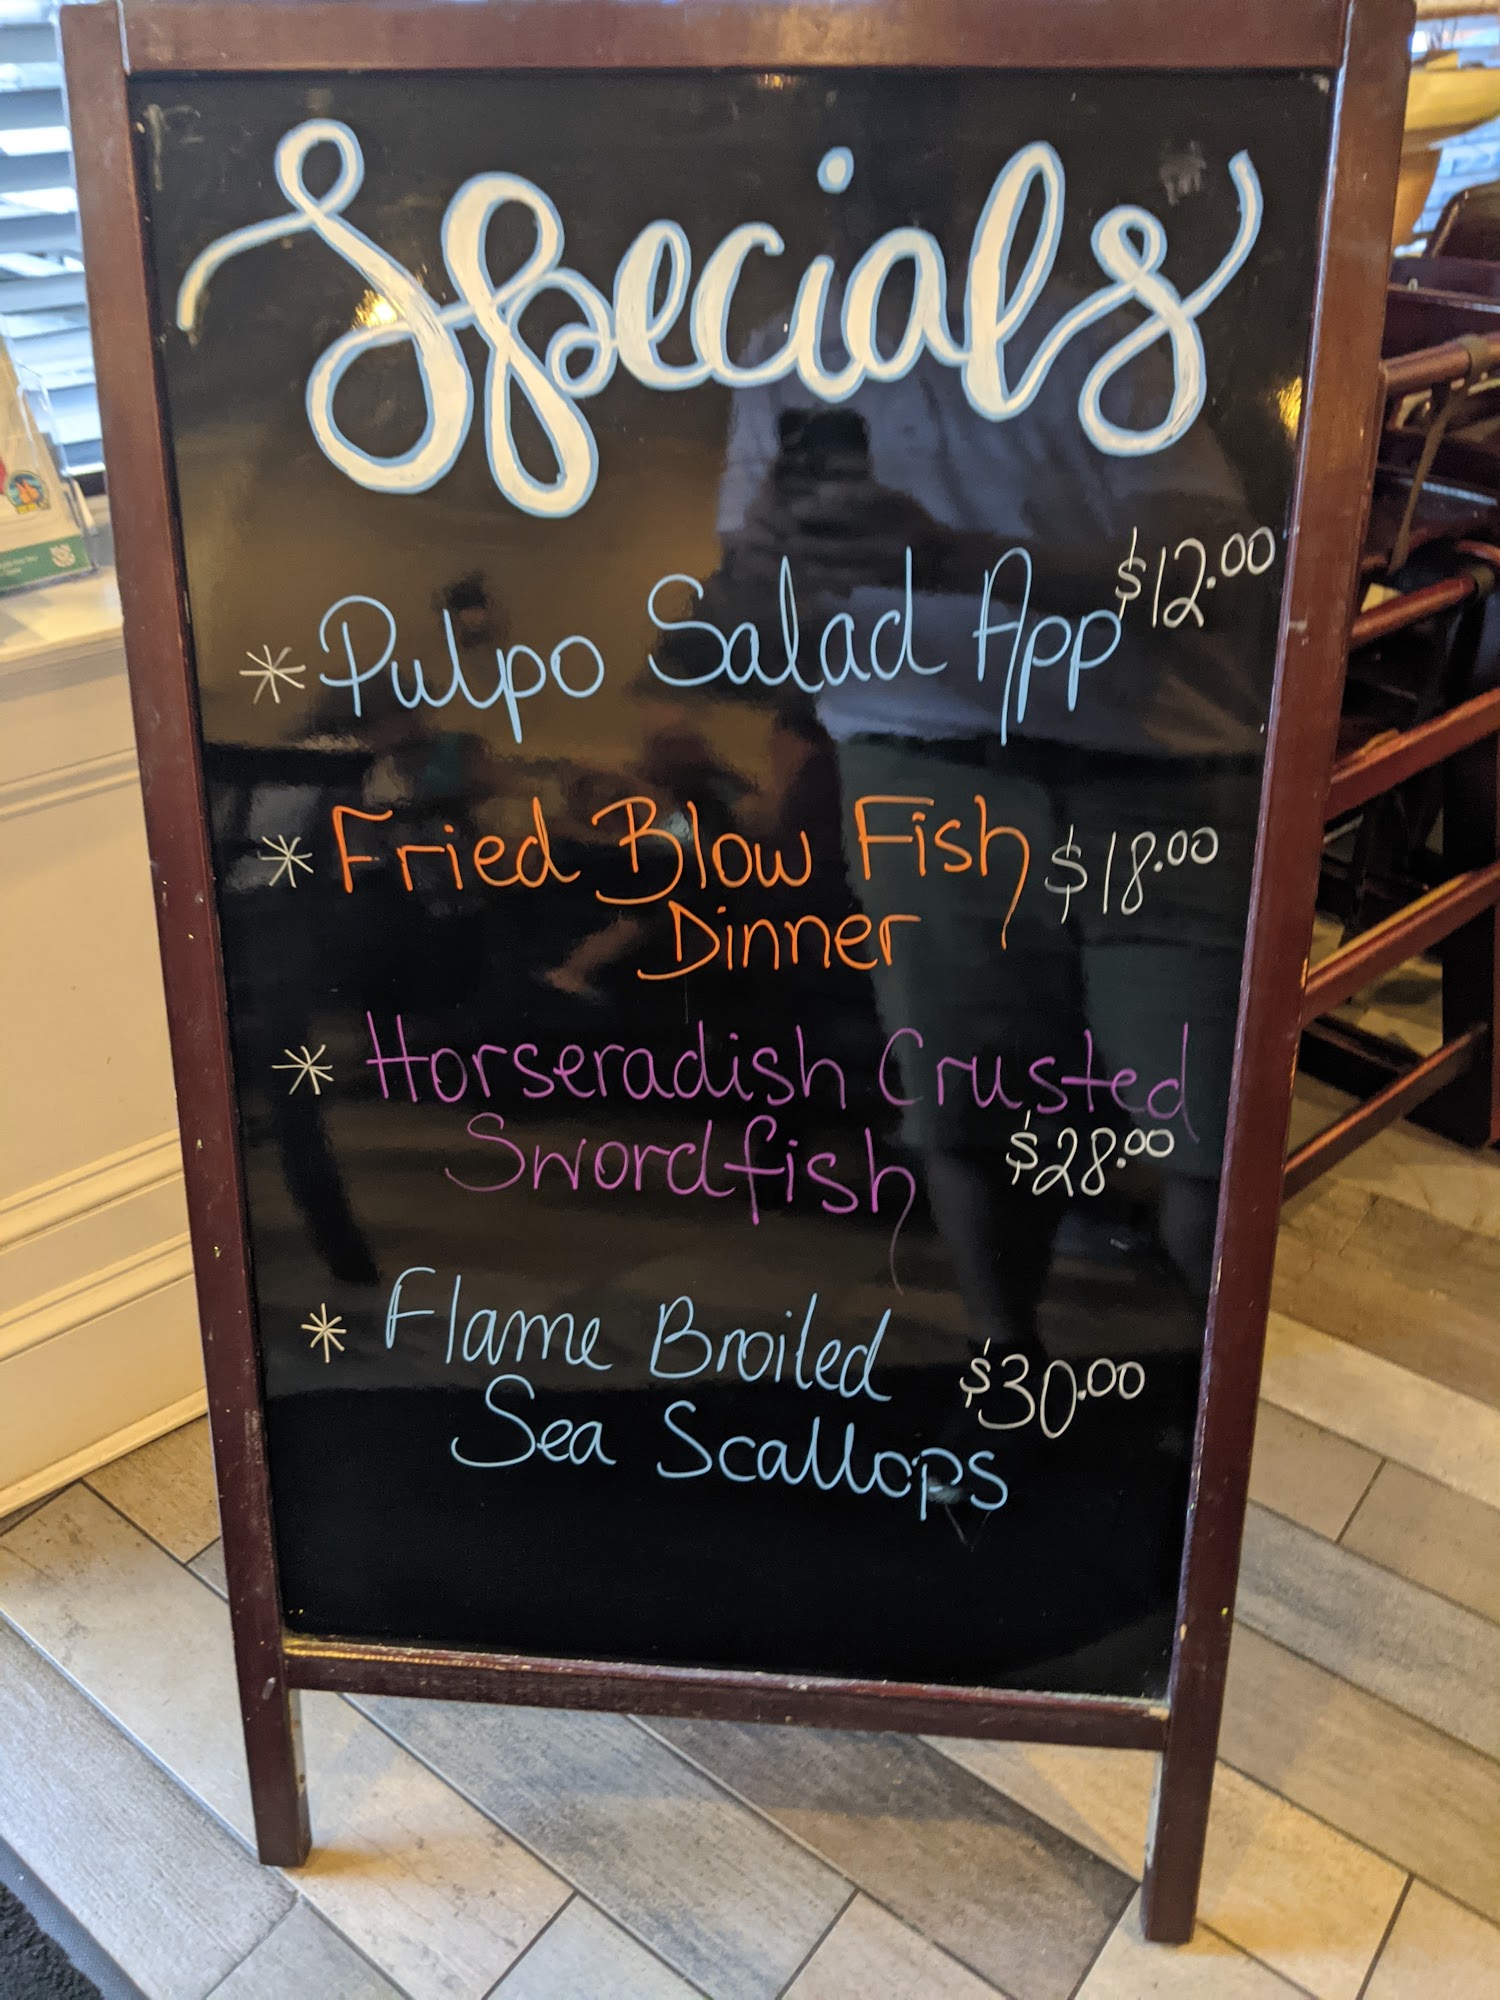 Specials
* Pulpo Salad App $12.00
* Fried Blow Fish $18.00
Dinner
* Horseradish Crusted
Swordfish $28.00
* Flame Broiled $30.00
Sea Scallops